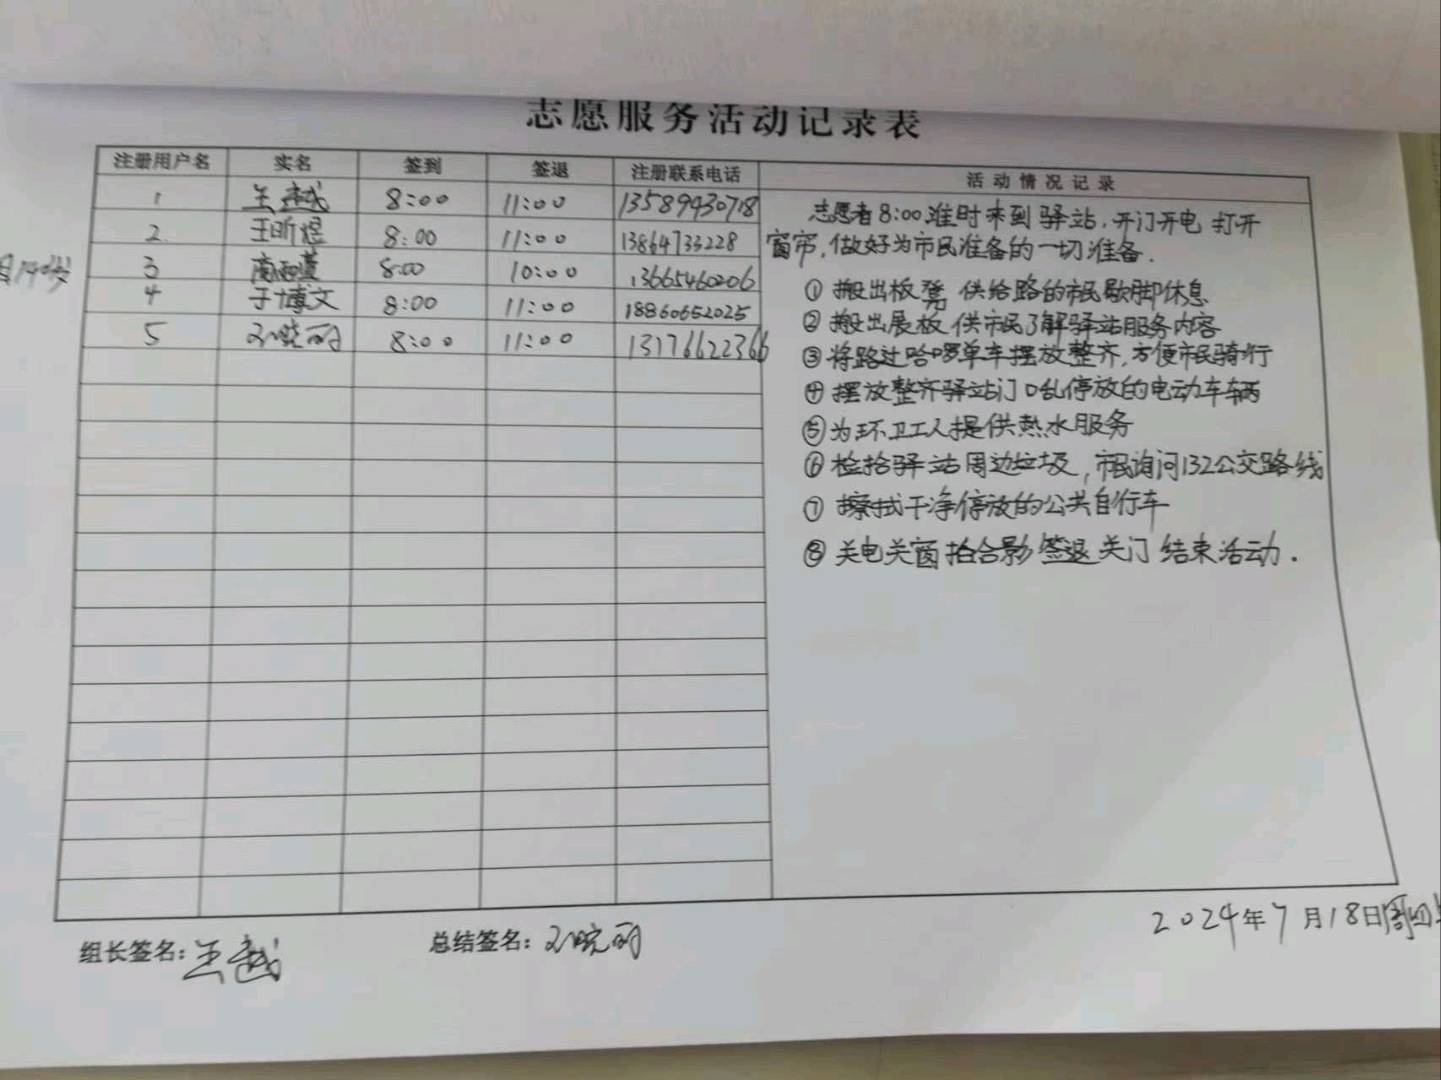 志愿服务活动记录表
注册用户名 实名 签到 签退 注册联系电话 活动情况记录
1 王越 8:00 11:00 13589430718
2 王昕煜 8:00 11:00 13864733228
3 8:00 10:00 13665460206
4 于博文 8:00 11:00 18860652025
5 孙晓丽 8:00 11:00 13176622366
志愿者8:00准时来到驿站,开门开电 打开
窗帘,做好为市民准备的一切准备.
① 搬出板凳 供给路的市民歇脚休息
② 搬出展板 供市民了解驿站服务内容
③ 将路过哈啰单车摆放整齐,方便市民骑行
④ 摆放整齐驿站门口乱停放的电动车车辆
⑤ 为环卫工人提供热水服务
⑥ 检拾驿站周边垃圾,市民询问132公交路线
⑦ 擦拭干净停放的公共自行车
⑧ 关电关窗拍合影 签退 关门 结束活动.
组长签名: 王越 总结签名: 孙晓丽 2024年7月18日周四